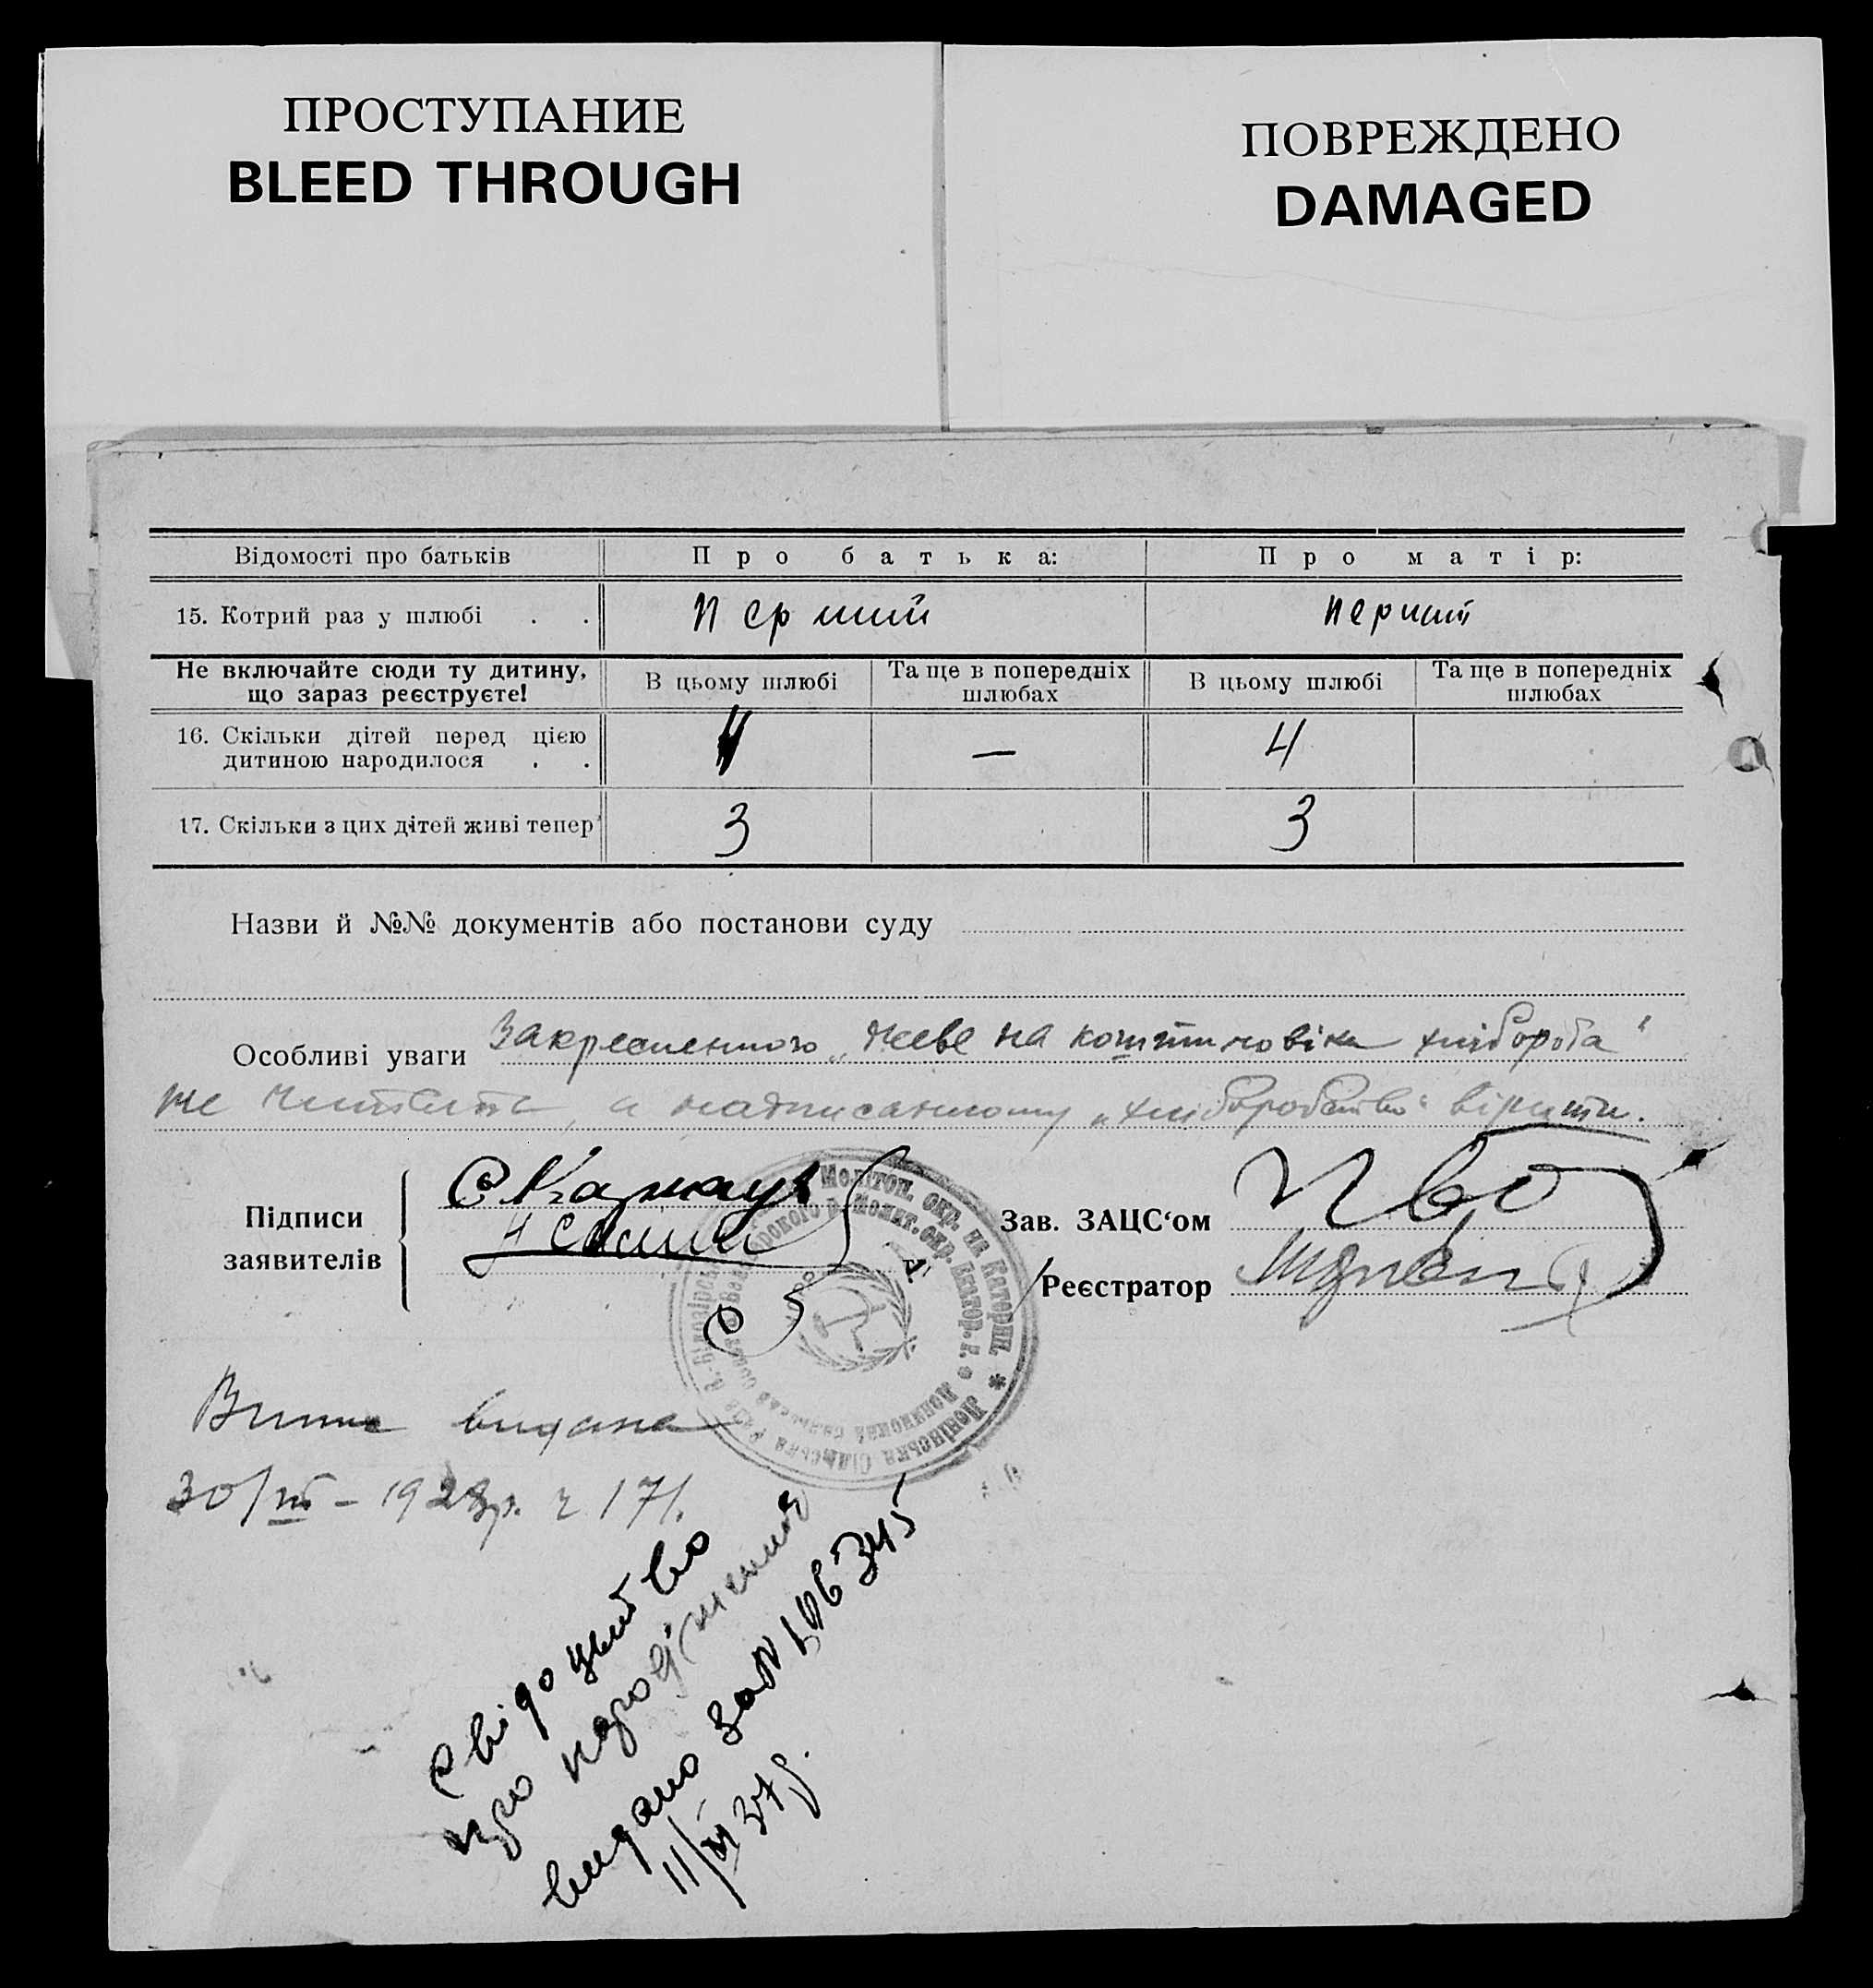 ПРОСТУПАНИЕ
BLEED THROUGH
ПОВРЕЖДЕНО
DAMAGED
Відомості про батьків Про батька: Про матір:
15. Котрий раз у шлюбі . . перший перший
Не включайте сюди ту дитину, що зараз реєструєте! В цьому шлюбі Та ще в попередніх шлюбах В цьому шлюбі Та ще в попередніх шлюбах
16. Скільки дітей перед цією дитиною народилося . . 4 — 4
17. Скільки з цих дітей живі тепер 3 3
Назви й №№ документів або постанови суду
Особливі уваги Закресленного „живе на кошти чоловіка хлібороба“
не читати, а надписанному „хліборобство“ вірити.
Підписи заявителів
Зав. ЗАЦС‘ом
Реєстратор
Мелітоп. окр. на Катерин. * Ленінська Сільська Рада
видана
30/III – 1928р. ч 171.
Свідоцтво
про народження
видано за №
11/VI 37 р.